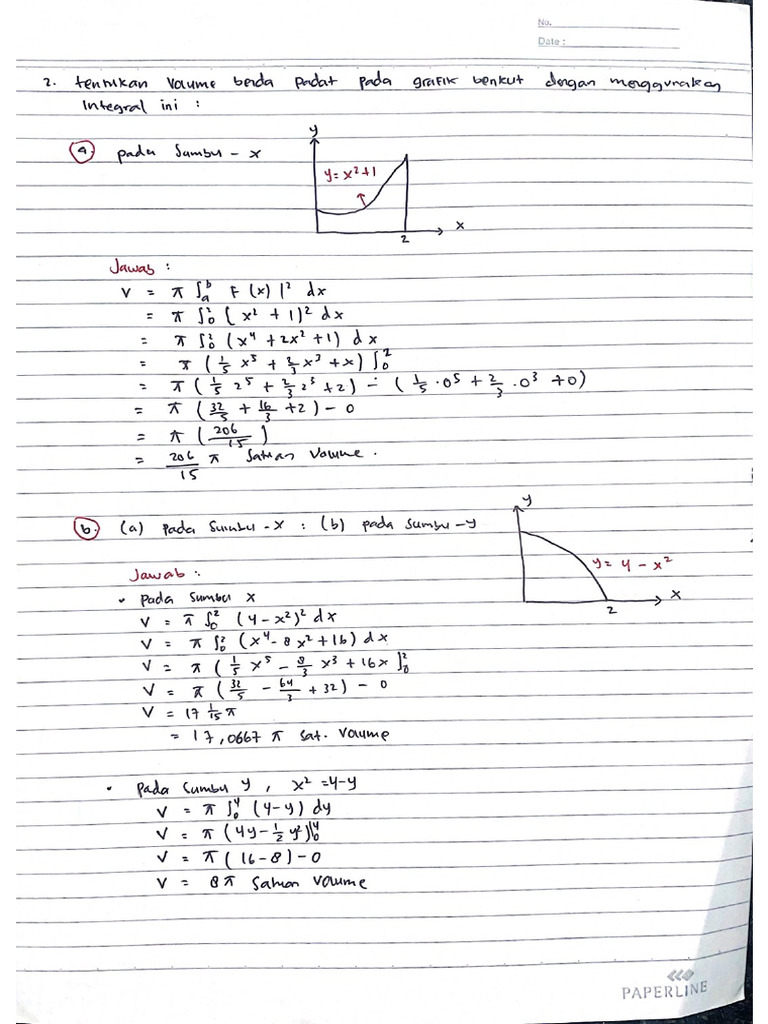 No.
Date :
2. tentukan Volume benda padat pada grafik berikut dengan menggunakan
Integral ini :
a. pada Sumbu - x
y
y = x² + 1
x
2
Jawab :
V = π ∫ₐᵇ F (x) |² dx
= π ∫₀² ( x² + 1)² dx
= π ∫₀² (x⁴ + 2x² + 1) dx
= π ( 1/5 x⁵ + 2/3 x³ + x) ∫₀²
= π ( 1/5 2⁵ + 2/3 2³ + 2) - ( 1/5 · 0⁵ + 2/3 · 0³ + 0)
= π ( 32/5 + 16/3 + 2) - 0
= π ( 206/15 )
= 206/15 π Satuan Volume.
b. (a) pada Sumbu - x : (b) pada sumbu - y
y
y = 4 - x²
x
2
Jawab :
• pada sumbu x
V = π ∫₀² (4 - x²)² dx
V = π ∫₀² (x⁴ - 8x² + 16) dx
V = π ( 1/5 x⁵ - 8/3 x³ + 16x ]₀²
V = π ( 32/5 - 64/3 + 32) - 0
V = 17 1/15 π
= 17,0667 π sat. Volume
• pada sumbu y , x² = 4-y
V = π ∫₀⁴ (4-y) dy
V = π (4y - 1/2 y²)|₀⁴
V = π ( 16 - 8) - 0
V = 8π Satuan Volume
PAPERLINE